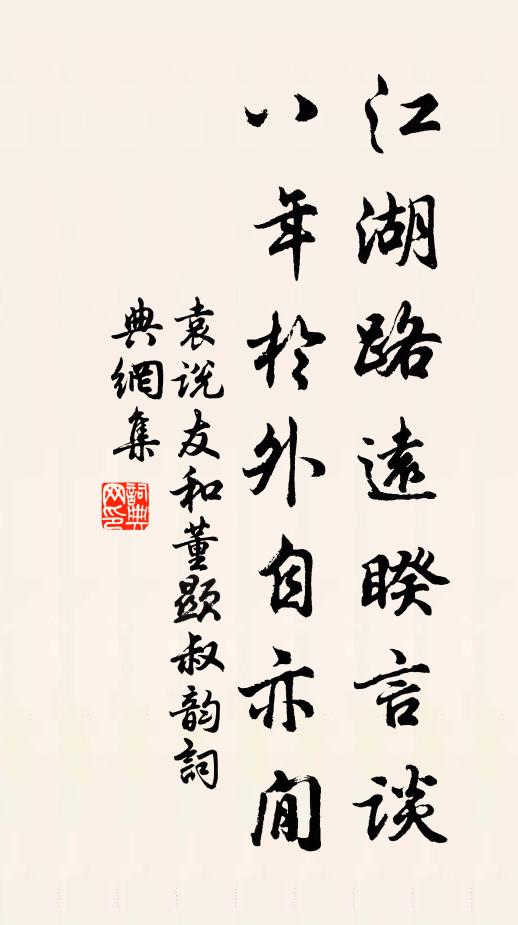 江湖路遠暌言談
八年於外自亦閒
袁说友和董顯叔韵詞
典網集
詞典網印